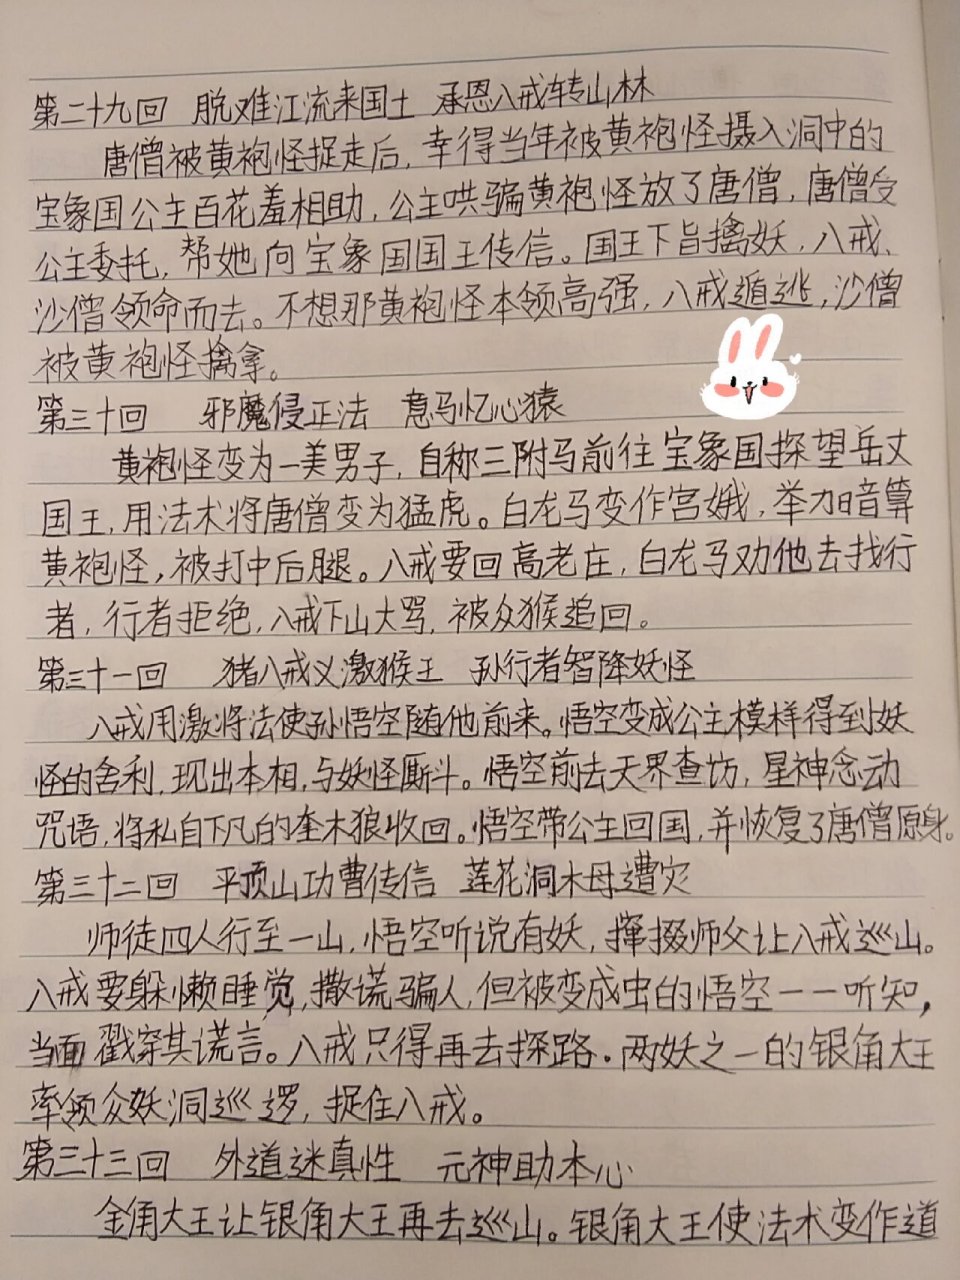 第二十九回 脱难江流来国土 承恩八戒转山林
唐僧被黄袍怪捉走后，幸得当年被黄袍怪摄入洞中的
宝象国公主百花羞相助，公主哄骗黄袍怪放了唐僧，唐僧受
公主委托，帮她向宝象国国王传信。国王下旨擒妖，八戒、
沙僧领命而去。不想那黄袍怪本领高强，八戒遁逃，沙僧
被黄袍怪擒拿。
第三十回 邪魔侵正法 意马忆心猿
黄袍怪变为一美男子，自称三附马前往宝象国探望岳丈
国王，用法术将唐僧变为猛虎。白龙马变作宫娥，举力暗算
黄袍怪，被打中后腿。八戒要回高老庄，白龙马劝他去找行
者，行者拒绝，八戒下山大骂，被众猴追回。
第三十一回 猪八戒义激猴王 孙行者智降妖怪
八戒用激将法使孙悟空随他前来。悟空变成公主模样得到妖
怪的舍利，现出本相，与妖怪厮斗。悟空前去天界查访，星神念动
咒语，将私自下凡的奎木狼收回。悟空带公主回国，并恢复了唐僧原身。
第三十二回 平顶山功曹传信 莲花洞木母遭灾
师徒四人行至一山，悟空听说有妖，撺掇师父让八戒巡山。
八戒要躲懒睡觉，撒谎骗人，但被变成虫的悟空一一听知，
当面戳穿其谎言。八戒只得再去探路．两妖之一的银角大王
率领众妖洞巡逻，捉住八戒。
第三十三回 外道迷真性 元神助本心
金角大王让银角大王再去巡山。银角大王使法术变作道